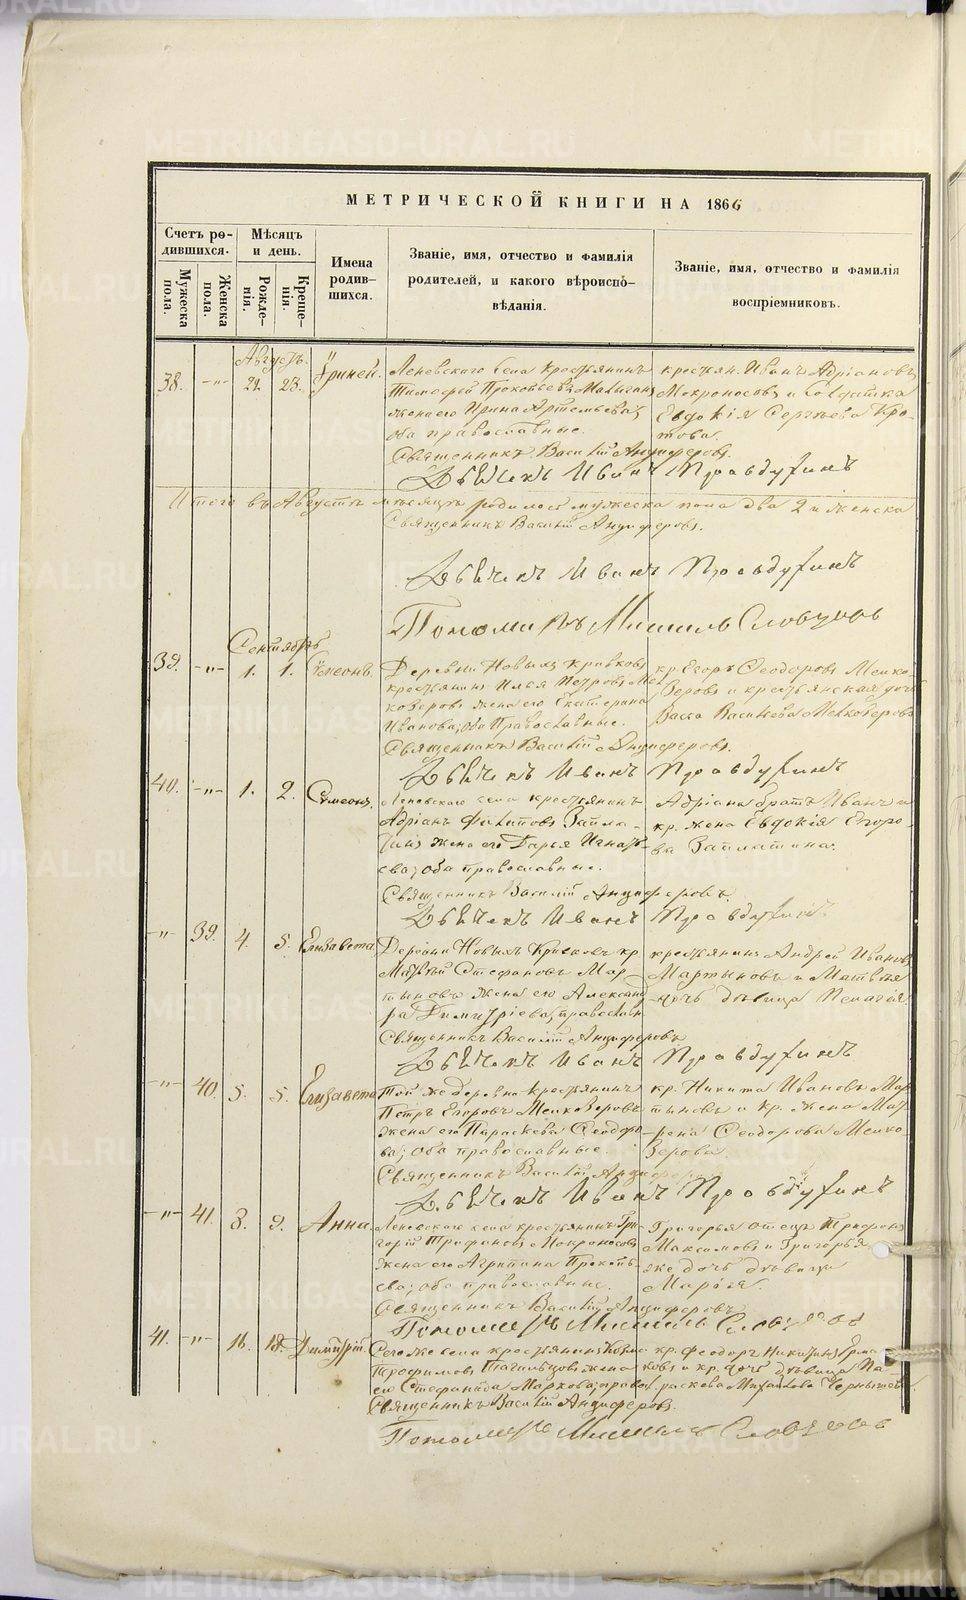 МЕТРИЧЕСКОЙ КНИГИ НА 1866
Счетъ родившихся.
Мѣсяцъ и день.
Имена родившихся.
Званіе, имя, отчество и фамилія родителей, и какого вѣроисповѣданія.
Званіе, имя, отчество и фамилія воспріемниковъ.
Мужеска пола.
Женска пола.
Рожденія.
Крещенія.
Августъ.
38. -"- 22. 23. Ириней.
Леневскаго села крестьянинъ
Тимофей Прокопьевъ
жена его Ирина Артемьева,
оба православные.
крестьян. Иванъ Адріановъ
Мокроносовъ и Солдатка
Евдокія Сергѣева Кротова.
Священникъ Василій Анциферовъ.
Дьячекъ Иванъ Правдухинъ
Итого въ Августѣ мѣсяцѣ родилось мужеска пола два 2 и женска
Священникъ Василій Анциферовъ.
Дьячекъ Иванъ Правдухинъ
Пономарь Михаилъ Словцовъ
Сентябрь
39. -"- 1. 1. Сѵмеонъ.
Деревни Новыхъ Кривковъ
крестьянинъ Илья Петровъ Мелкозеровъ жена его Екатерина
Иванова, оба Православные.
кр. Егоръ Ѳеодоровъ Мелкозеровъ и крестьянская дочь
Васса Васильева Мелкозерова
Священникъ Василій Анциферовъ.
Дьячекъ Иванъ Правдухинъ
40. -"- 1. 2. Сѵмеонъ.
Леневскаго села крестьянинъ
Адріанъ Филиповъ
жена его Дарья Игнатьева, оба православные.
Адріана братъ Иванъ и
кр. жена Евдокія Егорова Заплатина.
Священникъ Василій Анциферовъ.
Дьячекъ Иванъ Правдухинъ
-"- 39. 4. 5. Елизавета
Деревни Новыхъ Кривковъ кр.
Матвѣй Стефановъ Мартыновъ жена его Александра Димитріева, православн.
крестьянинъ Андрей Ивановъ
Мартыновъ и Матвѣя
дочь дѣвица Пелагія
Священникъ Василій Анциферовъ
Дьячекъ Иванъ Правдухинъ
-"- 40. 5. 5. Елизавета
Той же деревни крестьянинъ
Петръ Егоровъ Мелкозеровъ
жена его Параскева Ѳеодорова; оба православные.
кр. Никита Ивановъ Мартыновъ и кр. жена
Ѳеодорова Мелкозерова.
Священникъ Василій Анциферовъ
Дьячекъ Иванъ Правдухинъ
-"- 41. 8. 9. Анна.
Леневскаго села крестьянинъ Григорій Трифановъ Мокроносовъ
жена его Агрипина Прокопьева; оба православные.
Григорья отецъ Трифонъ
Максимовъ и Григорья
же дочь дѣвица
Марія.
Священникъ Василій Анциферовъ
Пономарь Михаилъ Словцовъ
41. -"- 16. 18. Димитрій.
Сего же села крестьянинъ
Трофимовъ жена
его Стефанида Маркова; правосл.
кр. Феодоръ Никитинъ
и кр. дочь дѣвица Параскева Михайлова Чернышева.
Священникъ Василій Анциферовъ.
Пономарь Михаилъ Словцовъ
METRIKI.GASO-URAL.RU